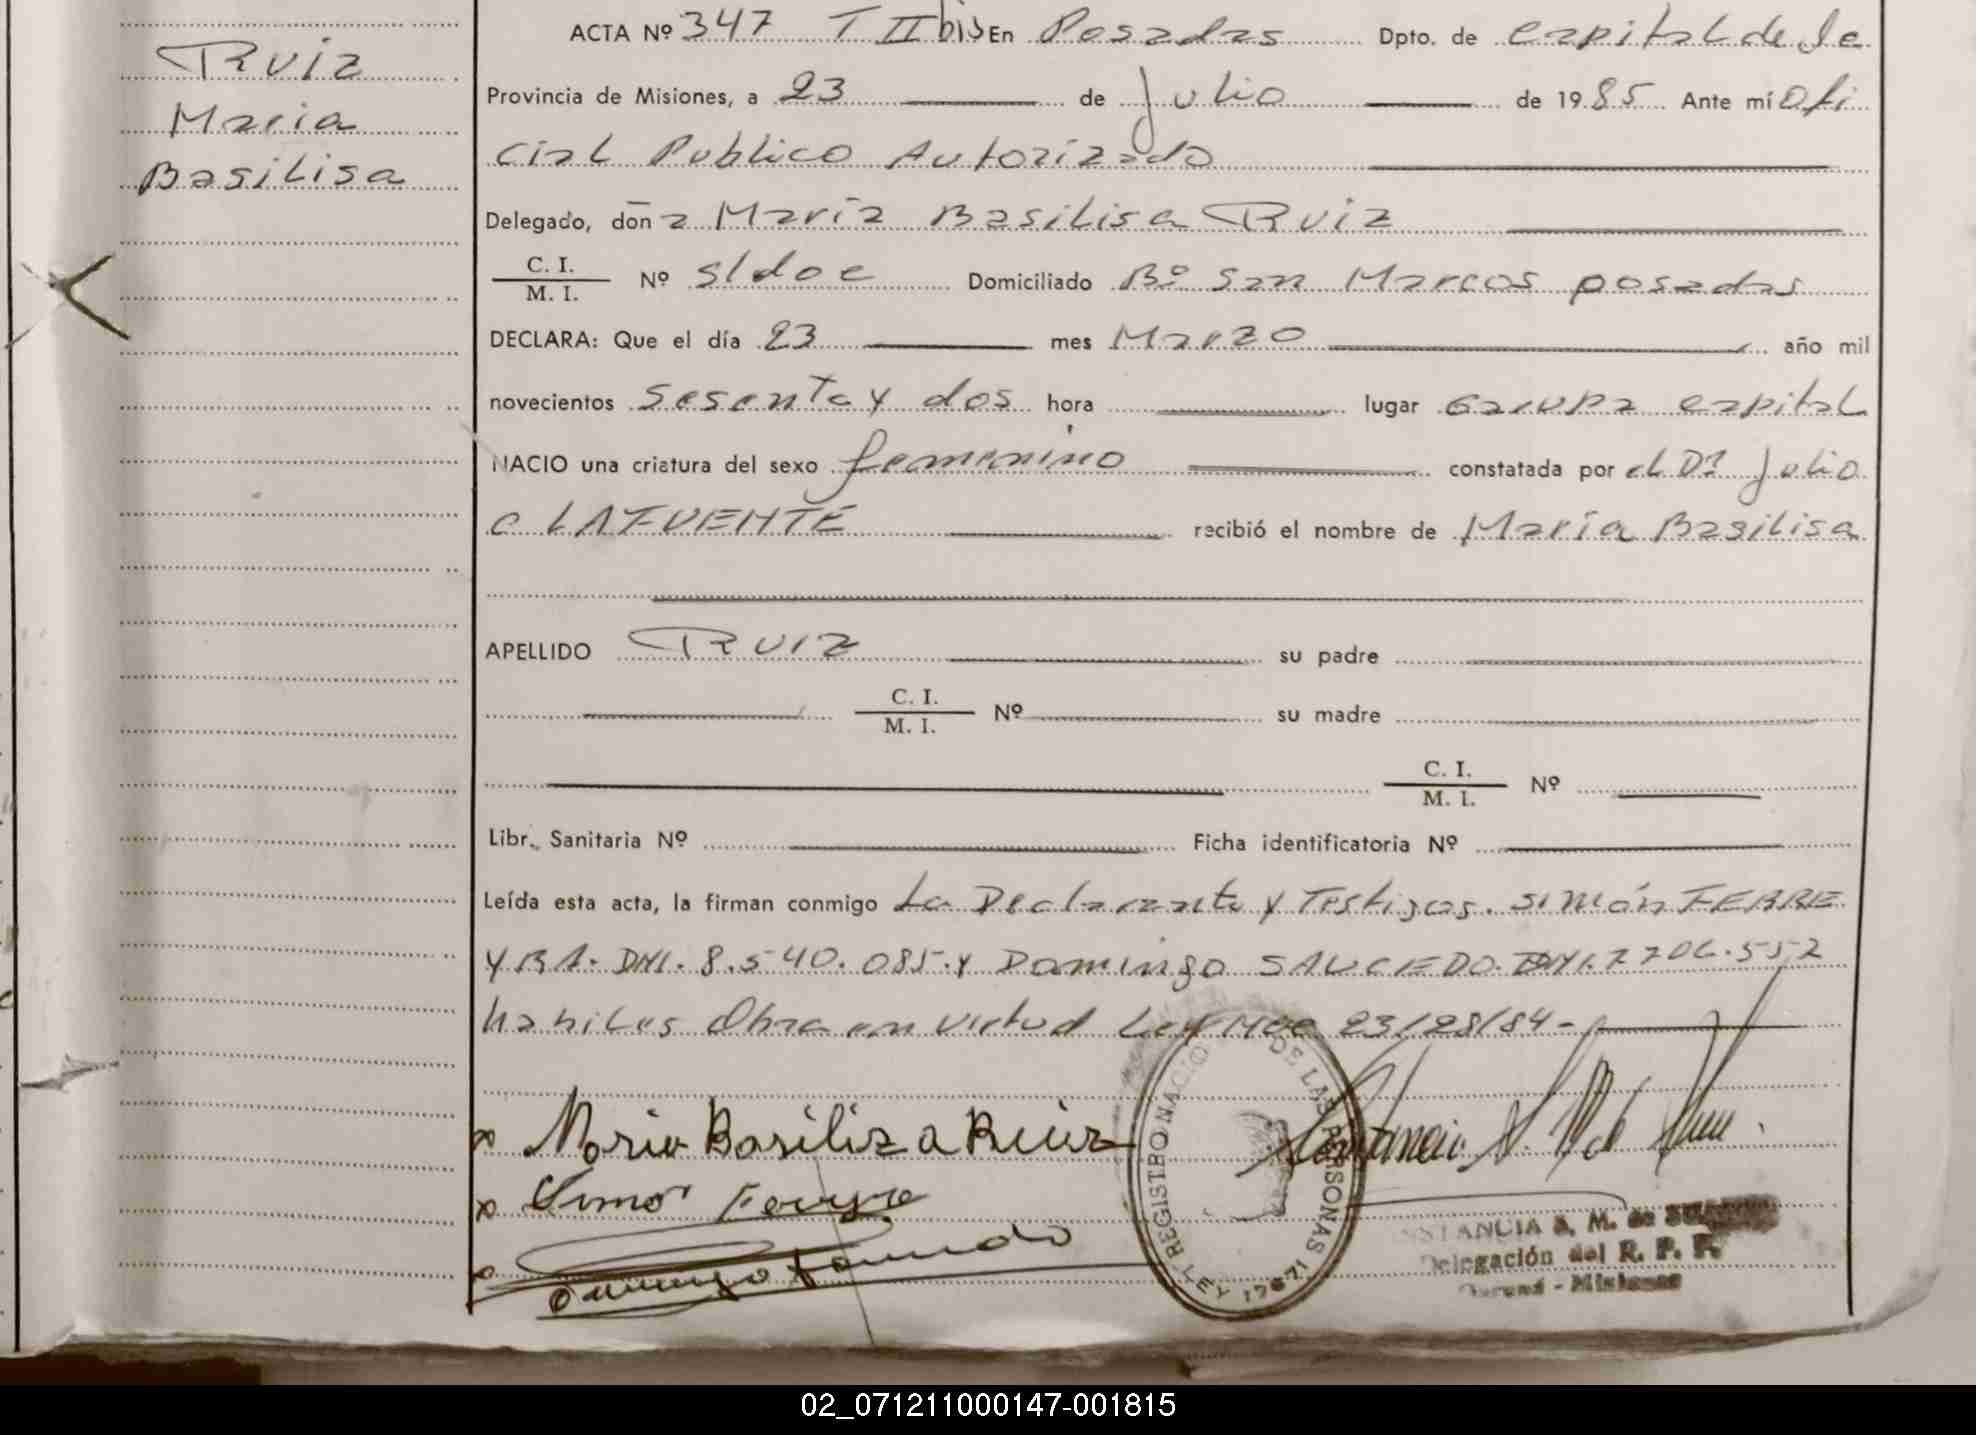 Ruiz
Maria
Basilisa
ACTA Nº 347 T II bis En Posadas Dpto. de capital de la
Provincia de Misiones, a 23 de Julio de 1985 Ante mí ofi
cial Publico Autorizado
Delegado, doña María Basilisa Ruiz
C. I.
M. I. Nº s/doc Domiciliado Bº San Marcos posadas
DECLARA: Que el día 23 mes Marzo año mil
novecientos sesenta y dos hora lugar Garupa capital
NACIO una criatura del sexo femenino constatada por el Dr Julio
C LAFUENTE recibió el nombre de María Basilisa
APELLIDO Ruiz su padre
C. I.
M. I. Nº su madre
C. I.
M. I. Nº
Libr. Sanitaria Nº Ficha identificatoria Nº
Leída esta acta, la firman conmigo La Declarante y Testigos. Simón FERRE
YRA. DNI. 8.540.085. y Domingo SAUCEDO. DNI. 7706.552
habiles Obra en virtud Ley Nro 23/28/84 -
x Maria Basiliza Ruiz
x Simon Ferreyra
x Domingo
REGISTRO NACIO DE LAS PERSONAS LEY 17671
STANCIA S. M. de
Delegación del R. P. P.
- Misiones
02_071211000147-001815